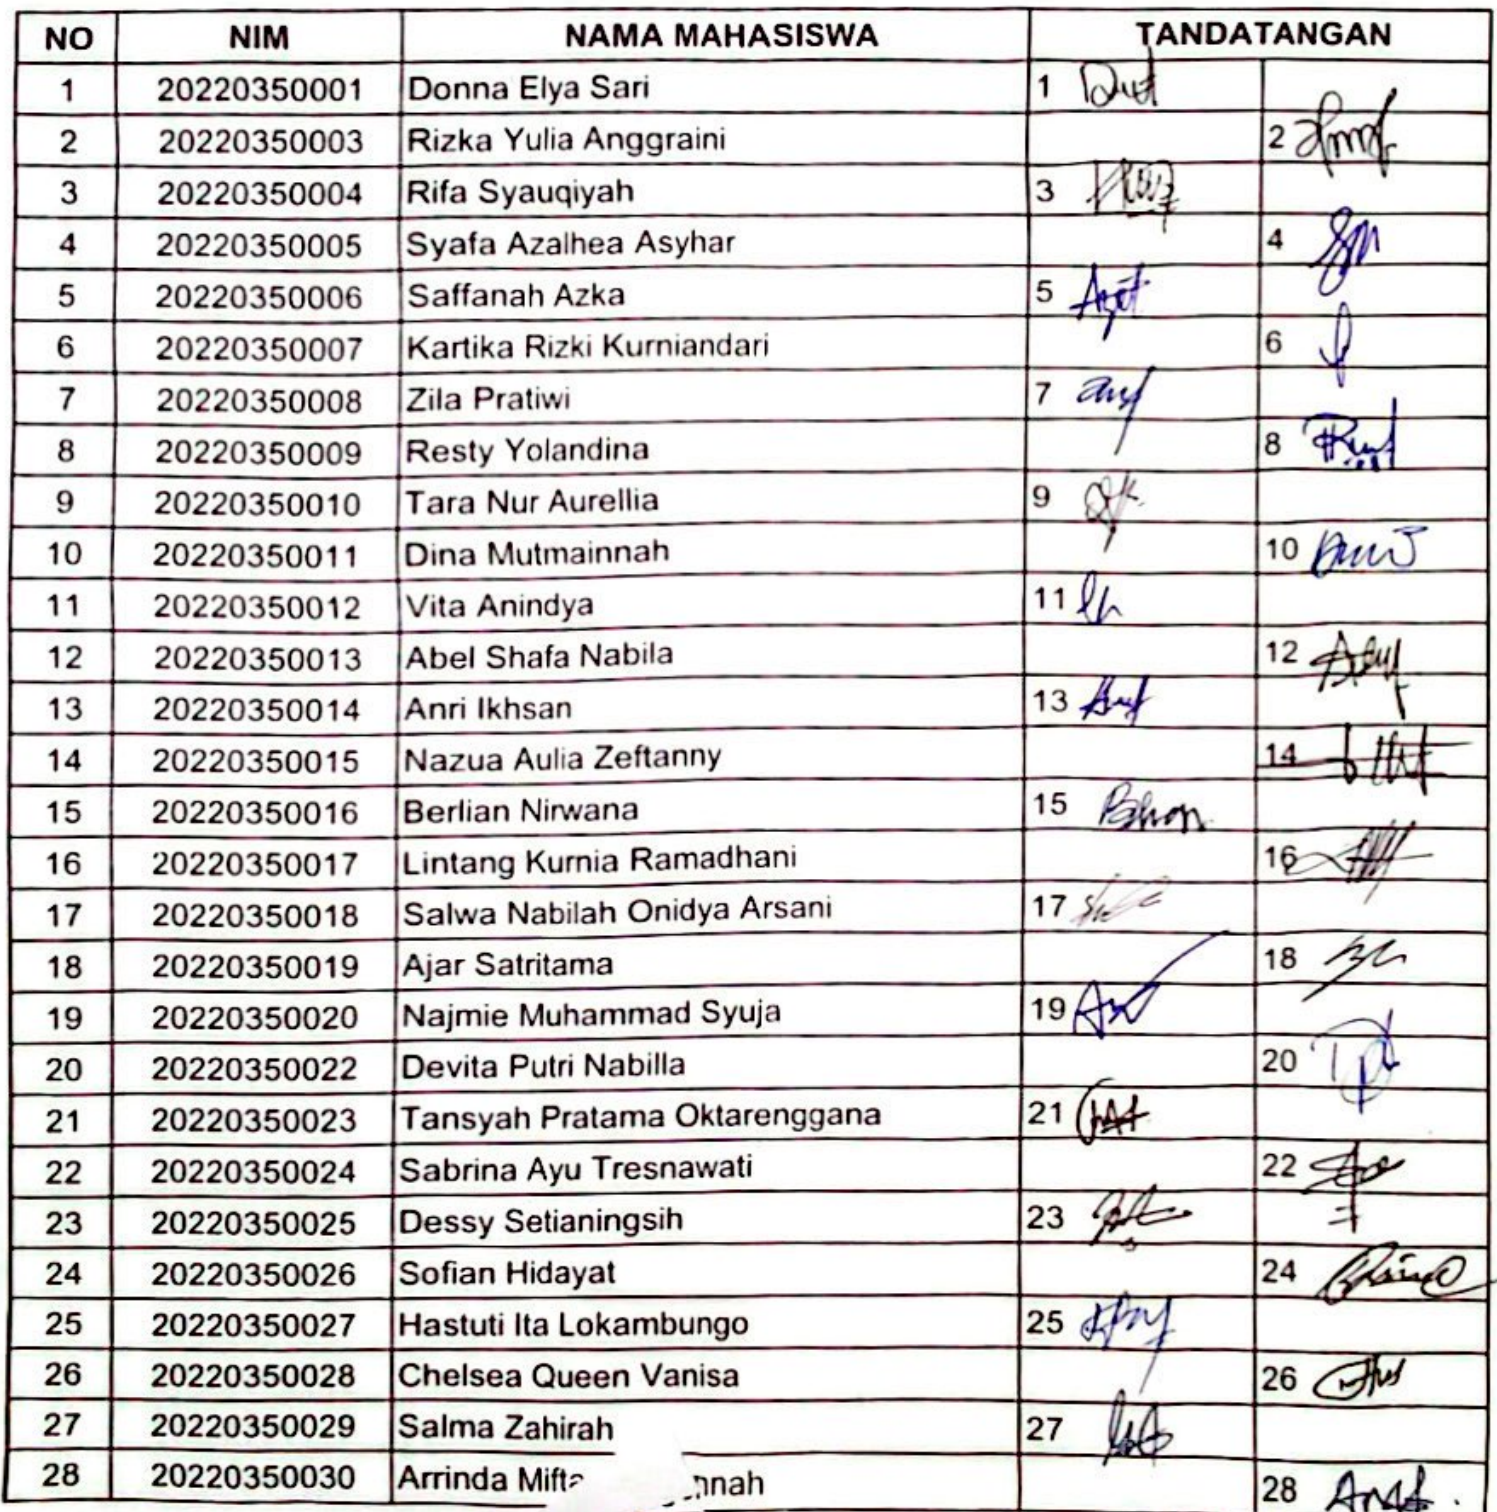 NO NIM NAMA MAHASISWA TANDATANGAN
1 20220350001 Donna Elya Sari 1
2 20220350003 Rizka Yulia Anggraini 2
3 20220350004 Rifa Syauqiyah 3
4 20220350005 Syafa Azalhea Asyhar 4
5 20220350006 Saffanah Azka 5
6 20220350007 Kartika Rizki Kurniandari 6
7 20220350008 Zila Pratiwi 7
8 20220350009 Resty Yolandina 8
9 20220350010 Tara Nur Aurellia 9
10 20220350011 Dina Mutmainnah 10
11 20220350012 Vita Anindya 11
12 20220350013 Abel Shafa Nabila 12
13 20220350014 Anri Ikhsan 13
14 20220350015 Nazua Aulia Zeftanny 14
15 20220350016 Berlian Nirwana 15
16 20220350017 Lintang Kurnia Ramadhani 16
17 20220350018 Salwa Nabilah Onidya Arsani 17
18 20220350019 Ajar Satritama 18
19 20220350020 Najmie Muhammad Syuja 19
20 20220350022 Devita Putri Nabilla 20
21 20220350023 Tansyah Pratama Oktarenggana 21
22 20220350024 Sabrina Ayu Tresnawati 22
23 20220350025 Dessy Setianingsih 23
24 20220350026 Sofian Hidayat 24
25 20220350027 Hastuti Ita Lokambungo 25
26 20220350028 Chelsea Queen Vanisa 26
27 20220350029 Salma Zahirah 27
28 20220350030 Arrinda 28